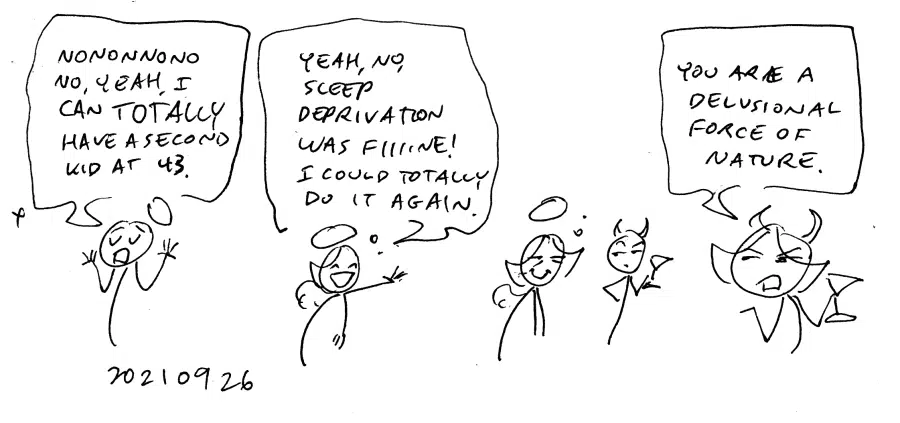 NONONNONO
NO, YEAH, I
CAN TOTALLY
HAVE A SECOND
KID AT 43.
YEAH, NO,
SLEEP
DEPRIVATION
WAS FIIIINE!
I COULD TOTALLY
DO IT AGAIN.
YOU ARE A
DELUSIONAL
FORCE OF
NATURE.
20210926